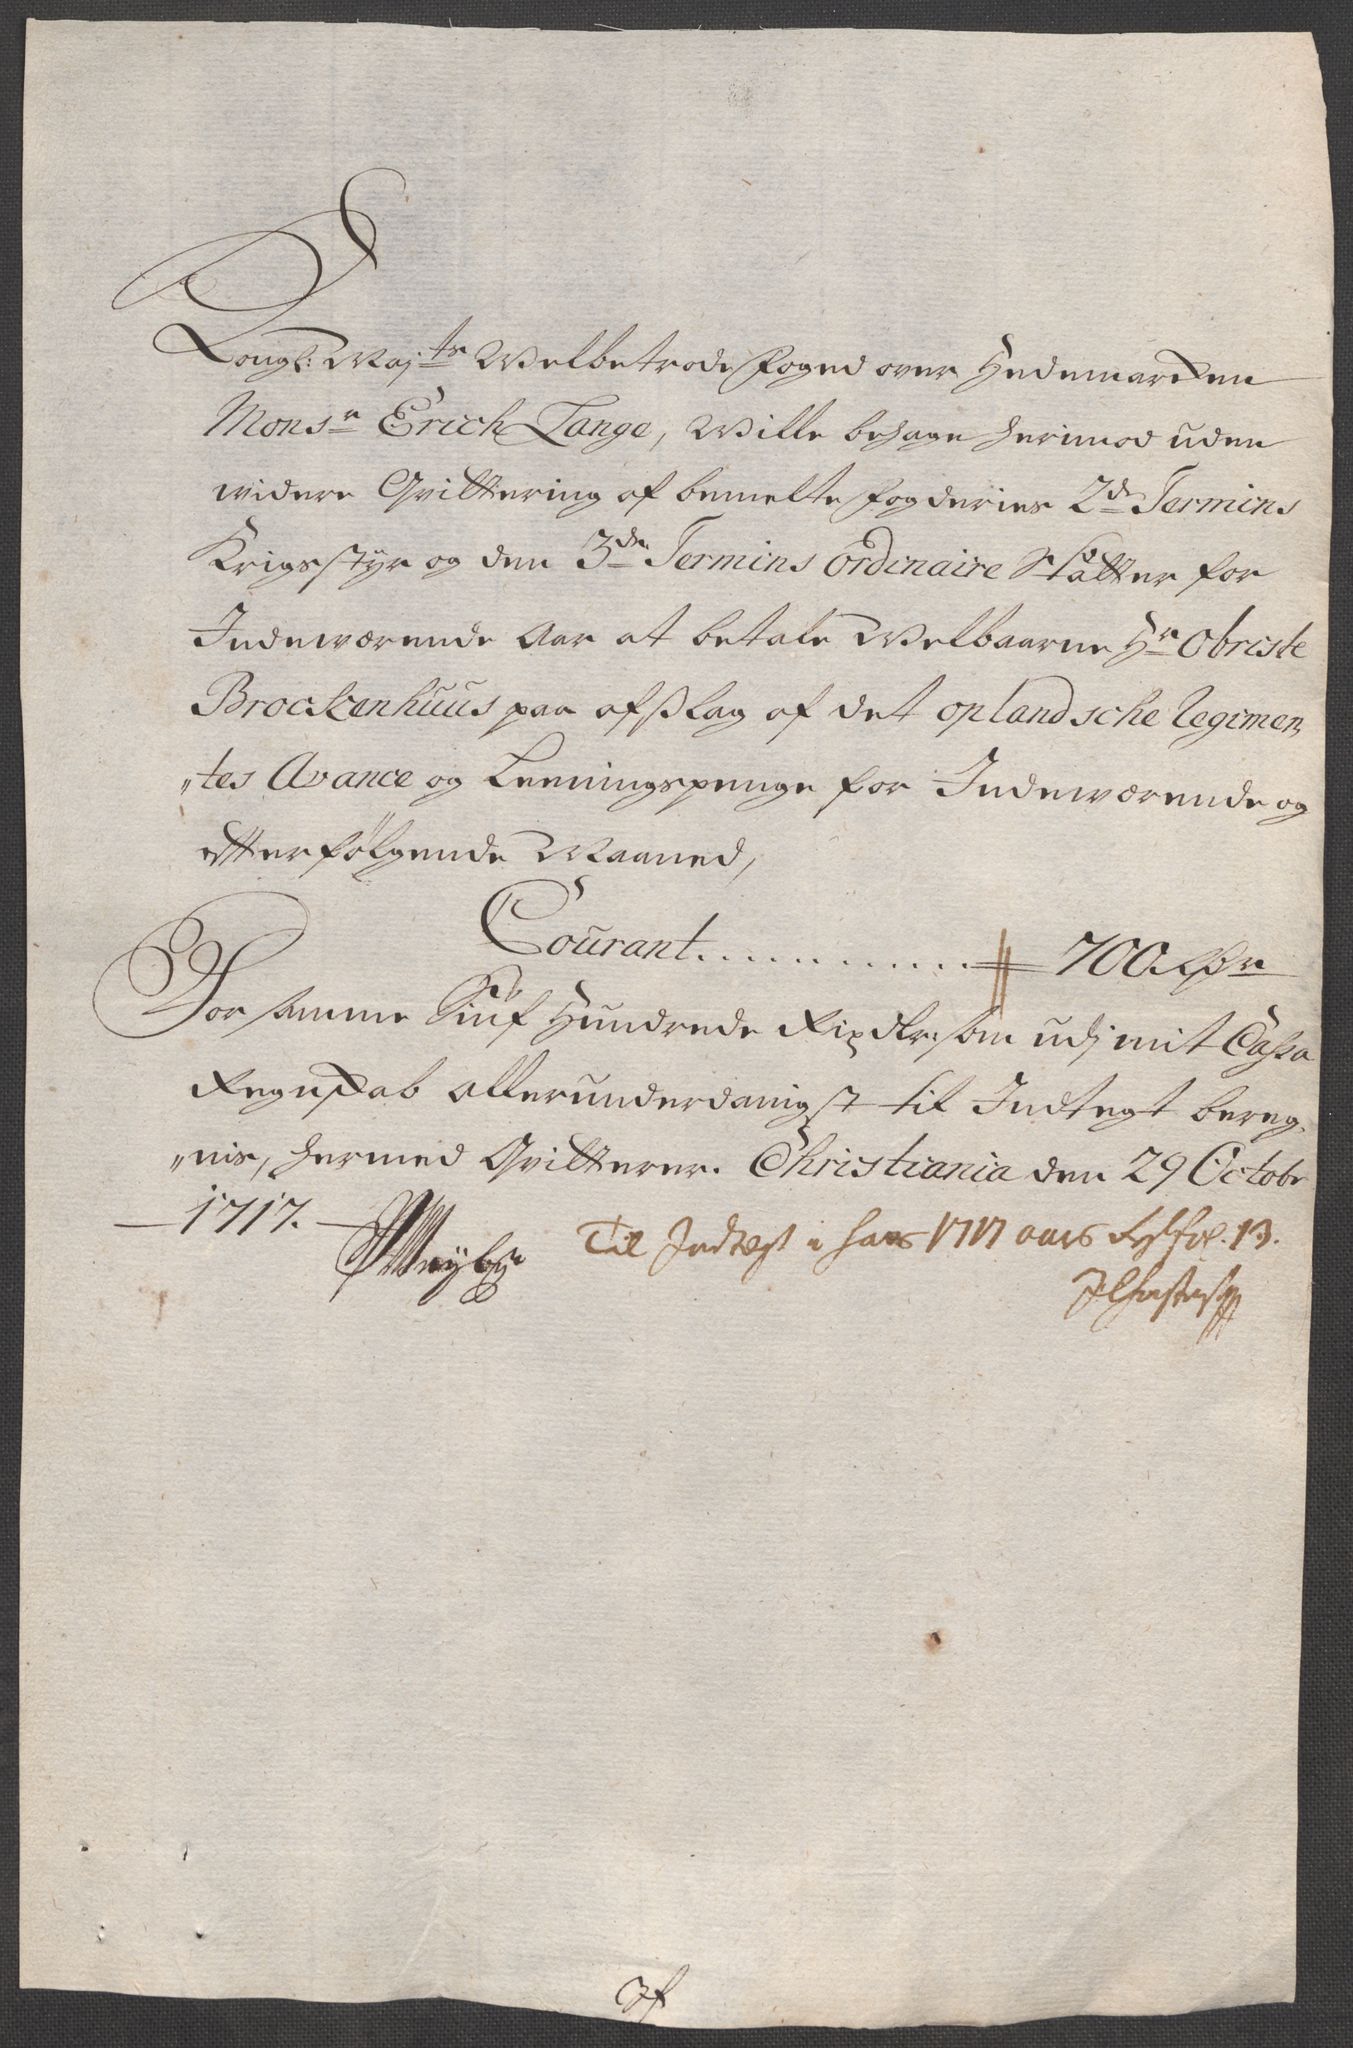 Kongl: Maj:ts Welbetrode foged over Hedemarcken
Monsr Erich Lange, Wille behage herimod uden
widere Qvittering af bemelte fogderies 2de Termins
Krigsstyr og den 3de Termins Ordinaire Skatter for
Indeværende Aar at betale Welbaarne Hr Obriste
Brockenhuus paa afslag af det oplandsche Regimen,,
,,tes Avance og Leeningspenge for Indeværende og
efterfølgende Maaned,
Courant.......... 700 Rdr
For samme Siuf Hundrede Rixdlr: som udj mit Cassa
Regnskab allerunderdanigst til Indtegt bereg,,
,,nis, hermed Qvitterer. Christiania den 29 Octobr
1717.
Til Indtegt i hans 1717 aars fol. 13.